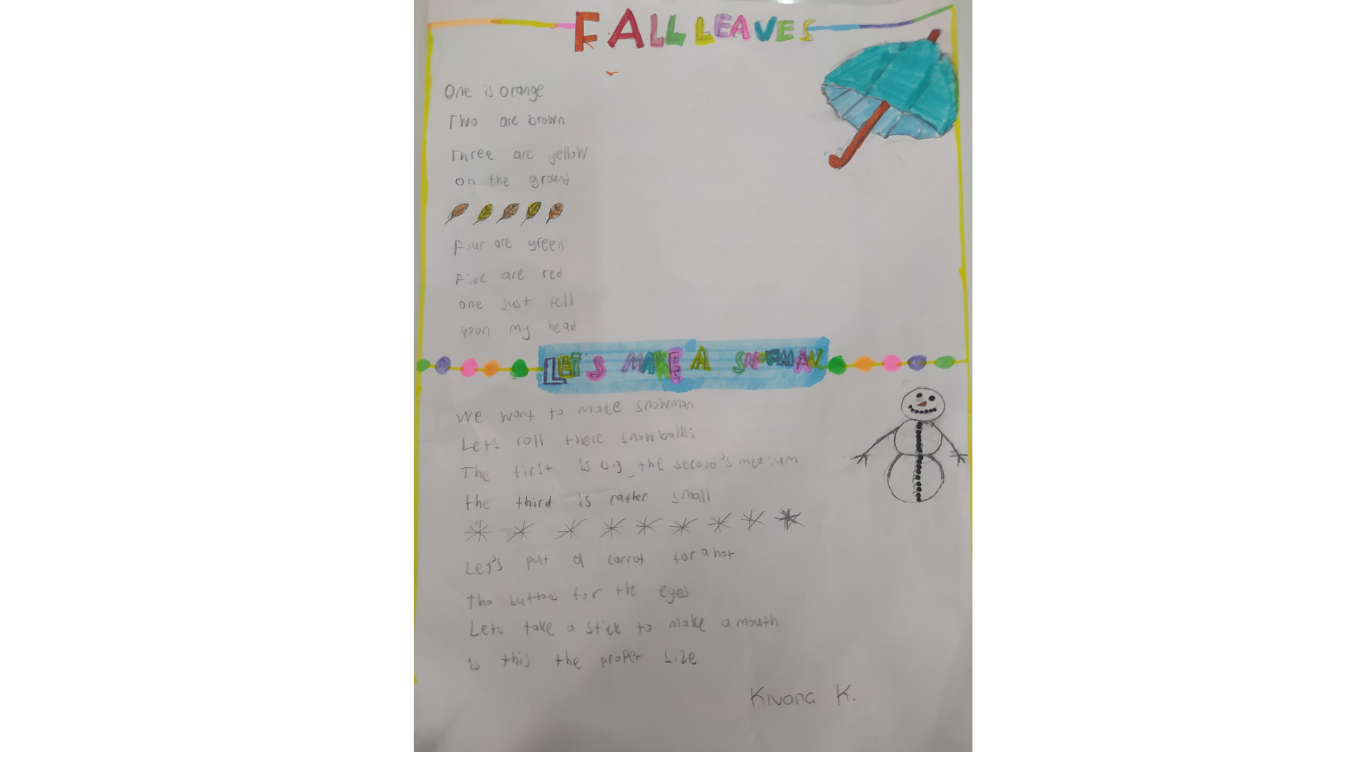 FALL LEAVES
One is orange
Two are brown
Three are yellow
on the ground
Four are green
Five are red
one just fell
upon my head
LET'S MAKE A SNOWMAN
We want to make snowman
Let's roll there snowballs;
The first is big_the second's medium
the third is rather small
Let's put a carrot for a
Tho buttons for the eyes
Lets take a stick to make a mouth
is this the proper size
Kıvanç K.